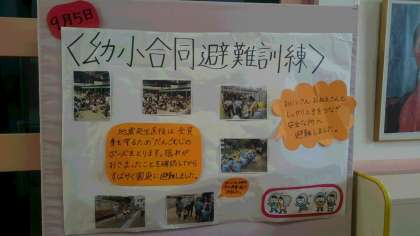 9月5日
〈幼小合同避難訓練〉
地震発生直後は全員
身を守るため「だんごむしの
ポーズ」をとります。揺れが
おさまったことを確認してから
すばやく園庭に避難しました。
おにいさん おねえさんと
しっかりと手をつなぎ
安全な所へ
避難しました。